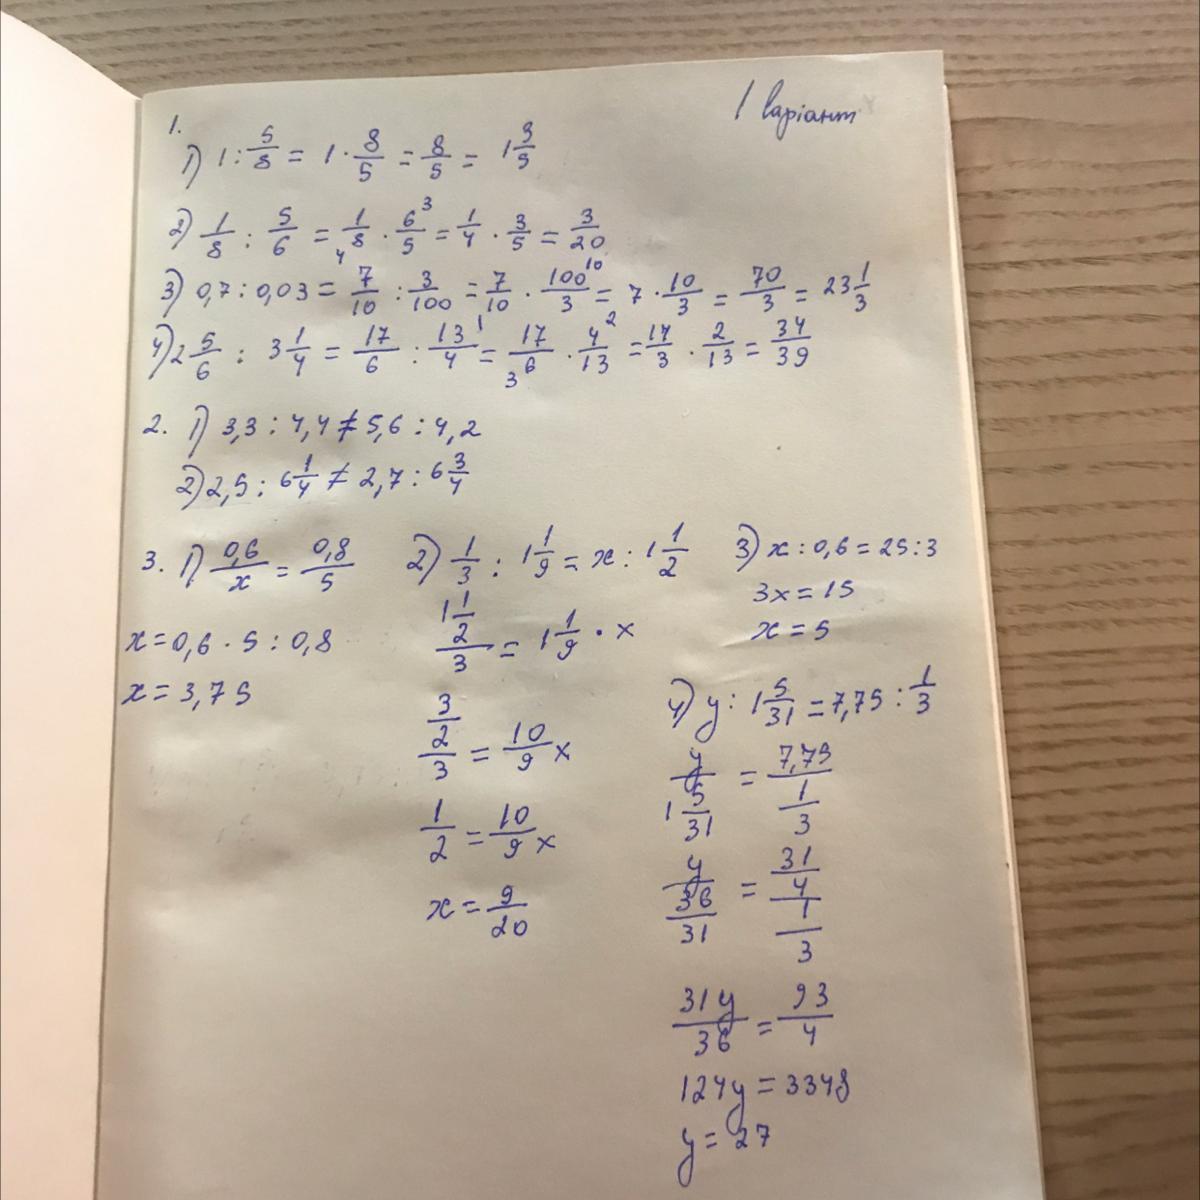 1 варіант
1.
1) 1 : 5/8 = 1 · 8/5 = 8/5 = 1 3/5
2) 1/8 : 5/6 = 1/8 4 · 6/5 3 = 1/4 · 3/5 = 3/20
3) 0,7 : 0,03 = 7/10 : 3/100 = 7/10 · 100/3 10 = 7 · 10/3 = 70/3 = 23 1/3
4) 2 5/6 : 3 1/4 = 17/6 : 13/4 1 = 17/6 3 · 4/13 2 = 17/3 · 2/13 = 34/39
2. 1) 3,3 : 4,4 ≠ 5,6 : 4,2
2) 2,5 : 6 1/4 ≠ 2,7 : 6 3/4
3. 1) 0,6/x = 0,8/5
x = 0,6 · 5 : 0,8
x = 3,75
2) 1/3 : 1 1/9 = x : 1 1/2
1 1/2 / 3 = 1 1/9 · x
3/2 / 3 = 10/9 x
1/2 = 10/9 x
x = 9/20
3) x : 0,6 = 25 : 3
3x = 15
x = 5
4) y : 1 5/31 = 7,75 : 1/3
y / 1 5/31 = 7,75 / 1/3
y / 36/31 = 31/4 / 1/3
31y/36 = 93/4
124y = 3348
y = 27